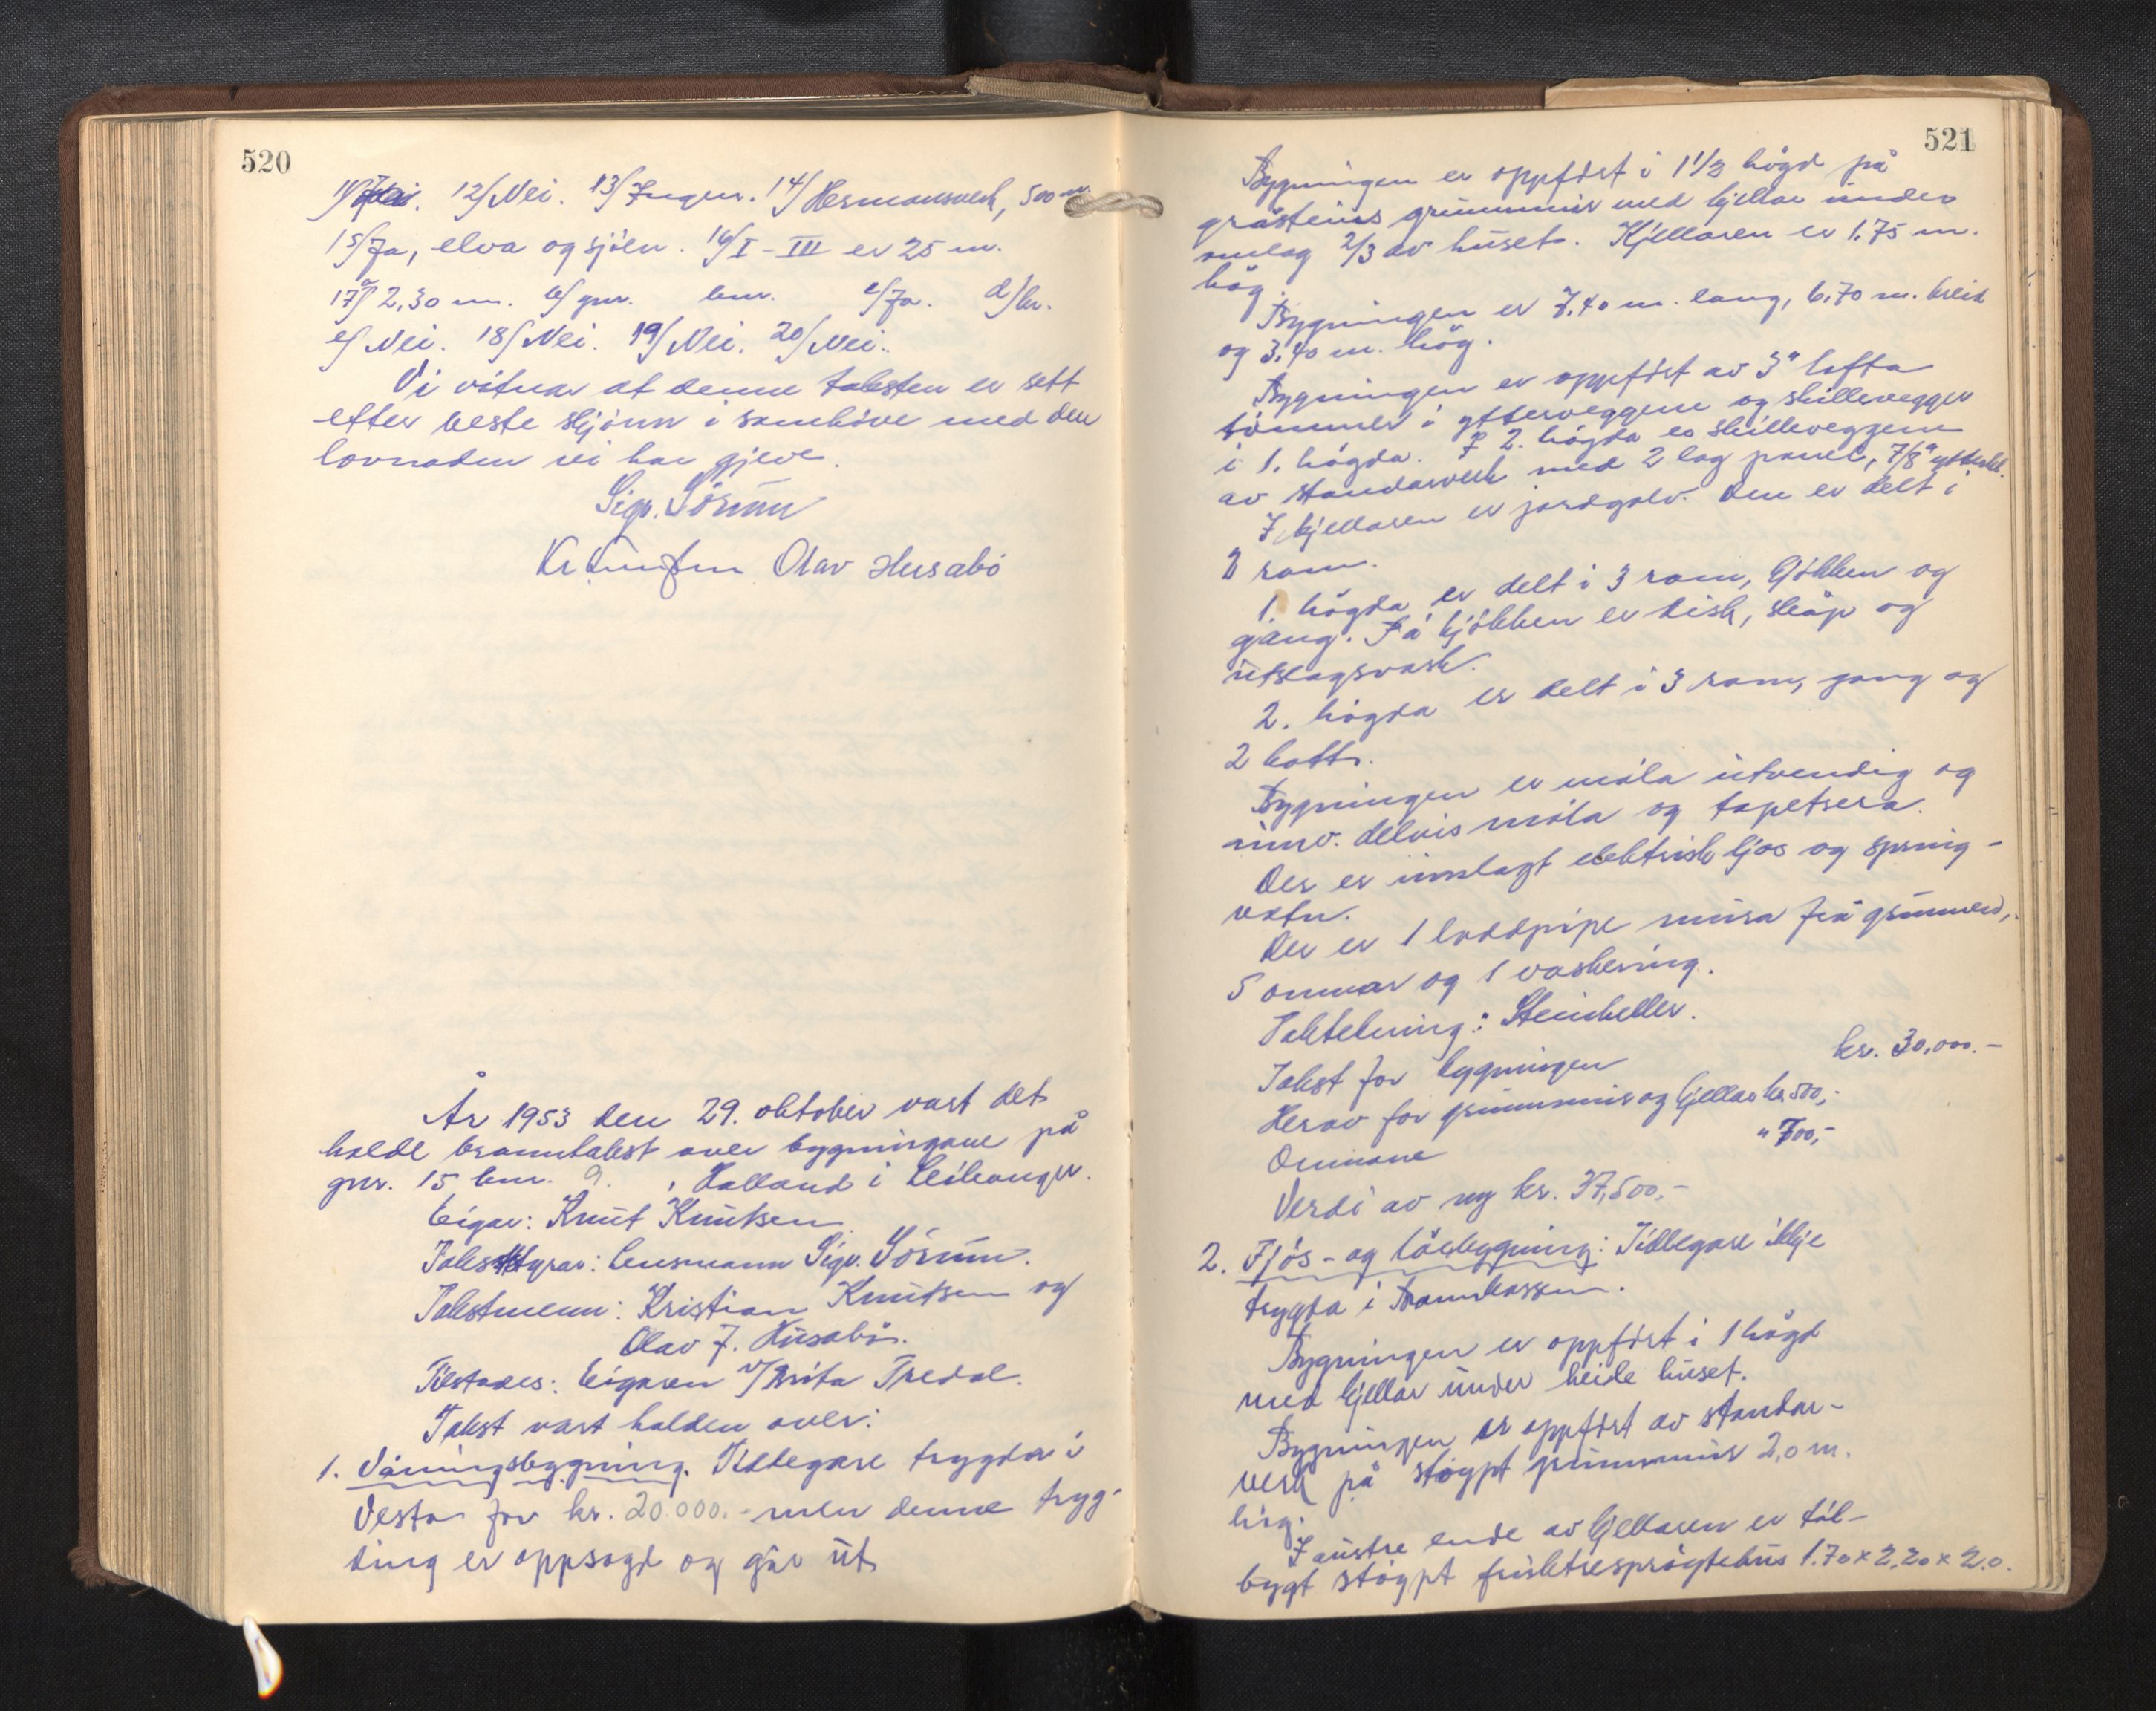 520
11/ Nei. 12/ Nei. 13/ Ingen. 14/ Hermansverk, 500 m.
15/ Ja, elva og sjöen. 16/ I - III er 25 m.
17/ a/ 2,30 m. b/ gnr. bnr. c/ Ja. d/ kr.
e/ Nei. 18/ Nei. 19/ Nei. 20/ Nei.
Vi vitnar at denne taksten er sett
etter beste skjönn i samhöve med den
lovnaden vi har gjeve.
Sigv. Sörum
Kr Knutsen Olav Husabö
År 1953 den 29. oktober vart det
halde branntakst over bygningane på
gnr. 15 bnr. 9. , Halland i Leikanger.
Eigar: Knut Knutsen
Takststyrar: Lensmann Sigv. Sörum.
Takstmenn: Kristian Knutsen og
Olav J. Husabö.
Tilstades: Eigaren v/ Brita Tredal.
Takst vart halden over:
1. Våningsbygning. Tidlegare trygda i
Vesta for kr. 20.000.- men denne tryg-
ding er oppsagd og går ut
521
Bygningen er oppfört i 1 1/2 högd på
gråsteins grunnmur med kjellar under
omlag 2/3 av huset. Kjellaren er 1.75 m.
hög.
Bygningen er 7.40 m. lang, 6.70 m. breid
og 3.40 m. hög.
Bygningen er oppfört av 3" lafta
tömmer i ytterveggene og skillevegger
i 1. högda. I 2. högda er skilleveggene
av standarverk med 2 lag panel, 7/8" ytterkl.
I kjellaren er jordgolv. Den er delt i
2 rom.
1. högda er delt i 3 rom, kjökken og
gang. På kjökken er disk, skåp og
utslagsvask.
2. högda er delt i 3 rom, gang og
2 kott.
Bygningen er måla utvendig og
innv. delvis måla og tapetsera.
Der er innlagt elektrisk ljos og spring-
vatn.
Der er 1 loddpipe mura frå grunnen,
5 omnar og 1 vaskering.
Taktekning: Steinheller.
Takst for bygningen kr. 30,000.-
Herav for grunnmur og kjellar kr. 500,-
Omnane " 700,-
Verdi av ny kr. 37,500.-
2. Fjös- og löebygning: Tidlegare ikkje
trygda i Brannkassen.
Bygningen er oppfört i 1 högd
med kjellar under heile huset.
Bygningen er oppfört av standar-
verk på stöypt grunnmur 2,0 m.
hög.
I austre ende av kjellaren er til-
bygt stöypt frukttresprögtehus 1.70 x 2,20 x 2.0.